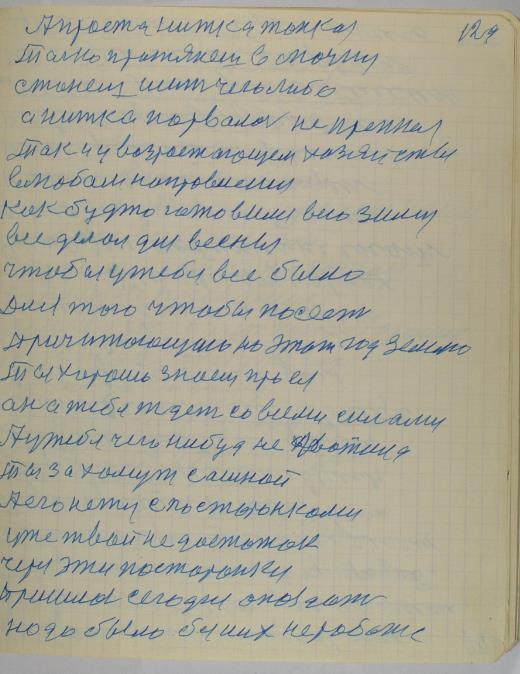 А проста нитка тонка 129
Толко протянеш в
станеш шит чего либо
а нитка порвалас не
так и у возростающем хозяйстви
в любом направлении
как будто готовили всю зиму
все делал для весны
чтобы у тебя все было
для того чтобы посеет
причитающуюс на этот год землю
Ты хорошо знаеш про ей
ана тебя ждет со всеми силами
А у тебя чего нибуд не
Ты за хомут с
А его нету с посторонками
уже твой недостаток
чери эти посторонки
пришлос сегодни опоздат
надо было бы их